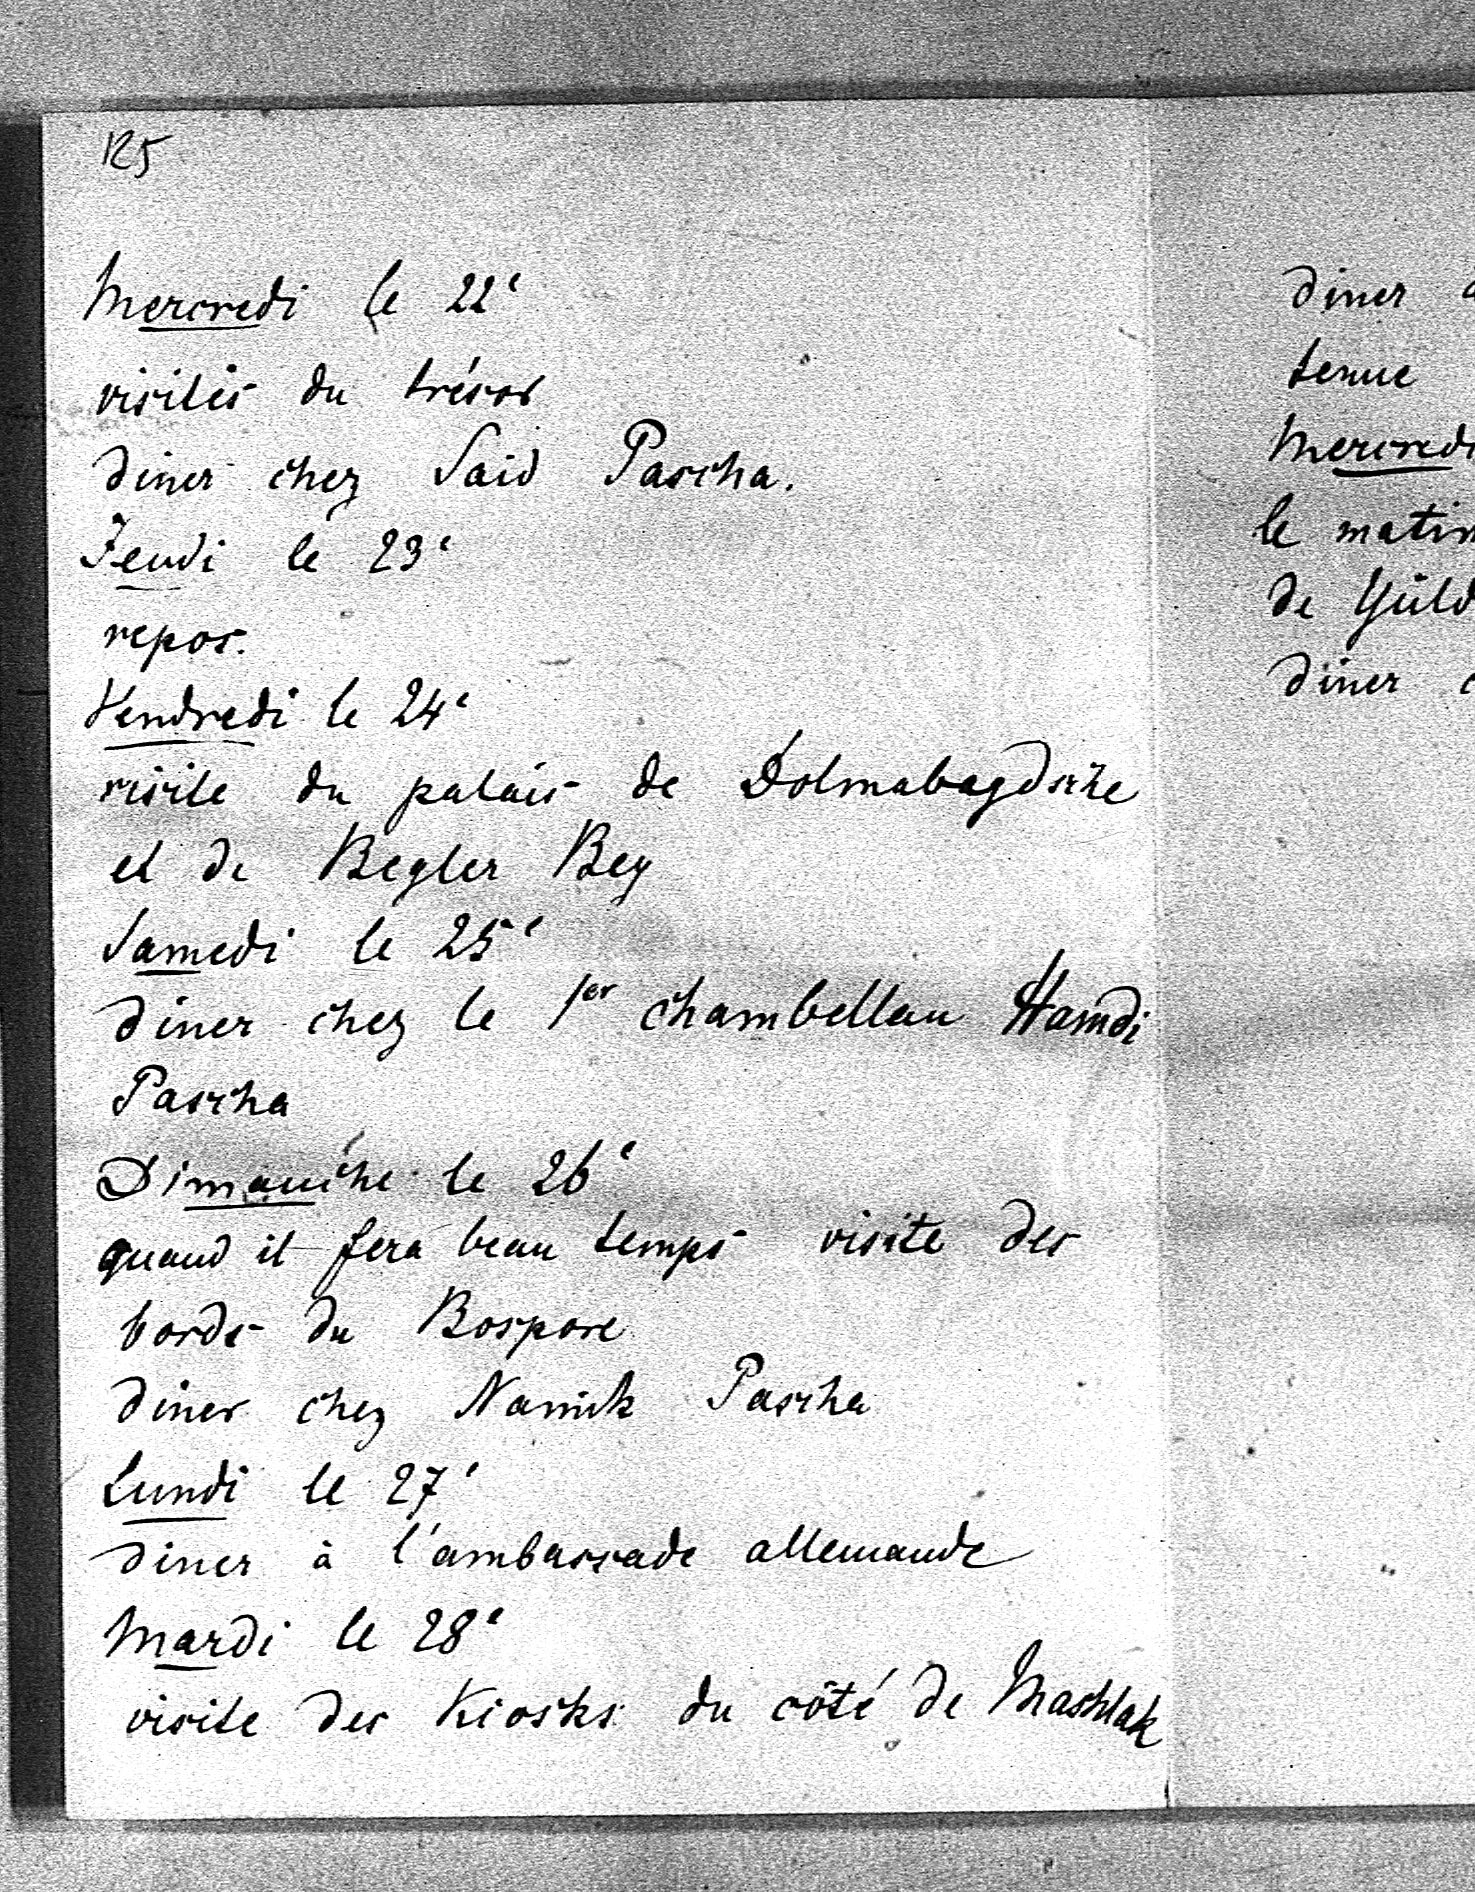 125
Mercredi le 22e
visites du trésor
diner chez Said Pascha.
Jeudi le 23e
repos.
Vendredi le 24e
visite du palais de Dolmabagdsche
et de Begler Bey
Samedi le 25e
diner chez le 1er chambellan Hamdi
Pascha
Dimanche le 26e
quand il fera beau temps visite des
bords du Bospore
diner chez Namik Pascha
Lundi le 27e
diner à l'ambassade allemande
Mardi le 28e
visite des Kiosks du côté de Maschlak
diner
tenue
Mercredi
le matin
de Yüld
diner